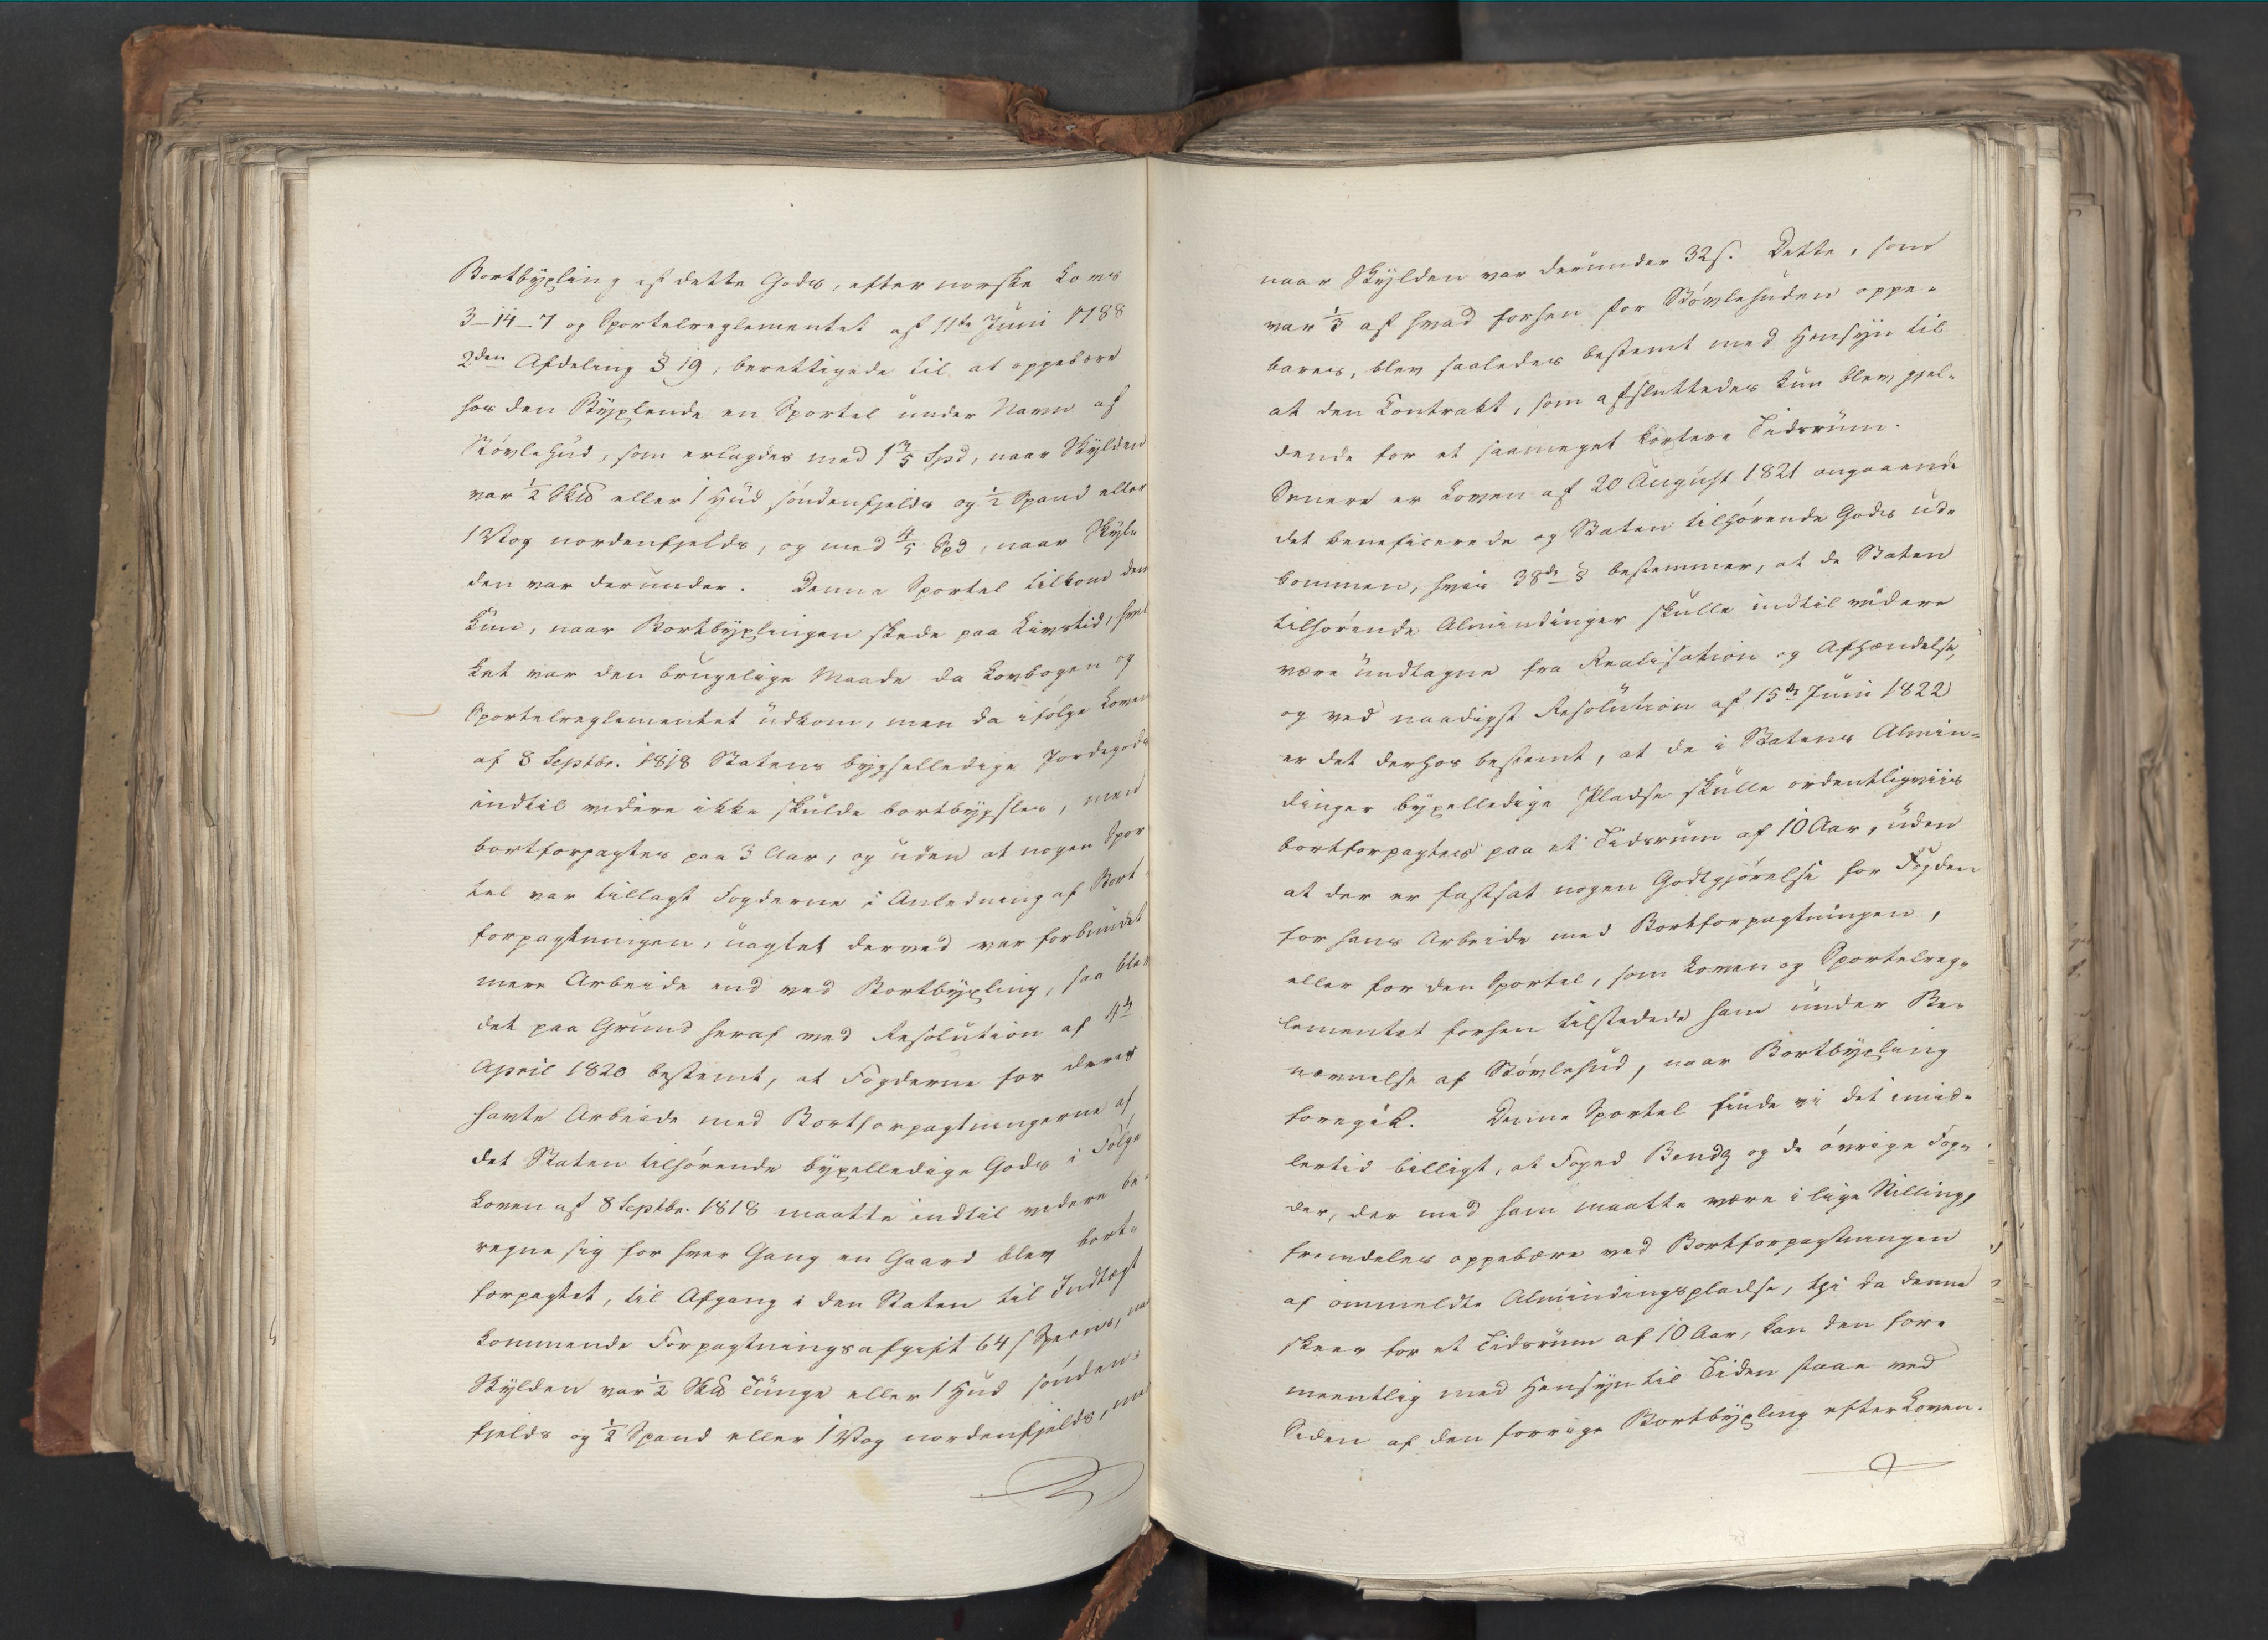 Bortbyxling af dette Gods, efter norske Lovs
3–14–7 og Sportelreglementet af 11te Juni 1788
2den Afdeling § 19, berettigede til at oppebære
hos den Byxlende en Sportel under Navn af
Støvlehud, som erlagdes med 1 3/5 Spd, naar Skylden
var 1/2 Sk℔ eller 1 Hud søndenfjelds og 1/2 Spand eller
1 Vog nordenfjelds, og med 4/5 Spd, naar Skyl-
den var derunder. Denne Sportel tilkom dem
kun, naar Bortbyxlingen skede paa Livstid, hvil
ket var den brugelige Maade da Lovbogen og
Sportelreglementet udkom, men da ifølge Loven
af 8 Septbr. 1818 Statens bygselledige Jordegods
indtil videre ikke skulde bortbygsles, men
bortforpagtes paa 3 Aar, og uden at nogen Spor
tel var tillagt Fogderne i Anledning af Bort-
forpagtningen, uagtet derved var forbundet
mere Arbeide end ved Bortbyxling, saa blev
det paa Grund heraf ved Resolution af 4de
April 1820 bestemt, at Fogderne for deres
havte Arbeide med Bortforpagtningerne af
det Staten tilhørende byxelledige Gods i Følge
Loven af 8 Septbr. 1818 maatte indtil videre be-
regne sig for hver Gang en Gaard blev bort-
forpagtet, til Afgang i den Staten til Indtægt
kommende Forpagtningsafgift 64 s Species, naar
Skylden var 1/2 Sk℔ Tunge eller 1 Hud sønden-
fjelds og 1/2 Spand eller 1 Vog nordenfjelds, men
naar Skylden var derunder 32 s. Dette, som
var 1/3 af hvad forhen for Støvlehuden oppe-
bares, blev saaledes bestemt med Hensyn til
at den Contrakt, som afsluttedes kun blev gjel-
dende for et saameget kortere Tidsrum.
Senere er Loven af 20 August 1821 angaaende
det beneficerede og Staten tilhørende Gods ud-
kommen, hvis 38de § bestemmer, at de Staten
tilhørende Almindinger skulle indtil videre
være undtagne fra Realisation og Afhændelse,
og ved naadigst Resolution af 15de Juni 1822
er det derhos bestemt, at de i Statens Almin-
dinger byxelledige Pladse skulle ordentligviis
bortforpagtes paa et Tidsrum af 10 Aar, uden
at der er fastsat nogen Godtgjørelse for Fogden
for hans Arbeide med Bortforpagtningen,
eller for den Sportel, som Loven og Sportelreg-
lementet forhen tilstedede ham under Be-
nævnelse af Støvlehud, naar Bortbyxling
foregik. Denne Sportel finde vi det imid-
lertid billigt, at Foged Bendz og de øvrige Fog-
der, der med ham maatte være i lige Stilling,
fremdeles oppebære ved Bortforpagtningen
af ommeldte Almindingspladse, thi da denne
skeer for et Tidsrum af 10 Aar, kan den for-
meentlig med Hensyn til Tiden staae ved
Siden af den forrige Bortbyxling efter Loven.